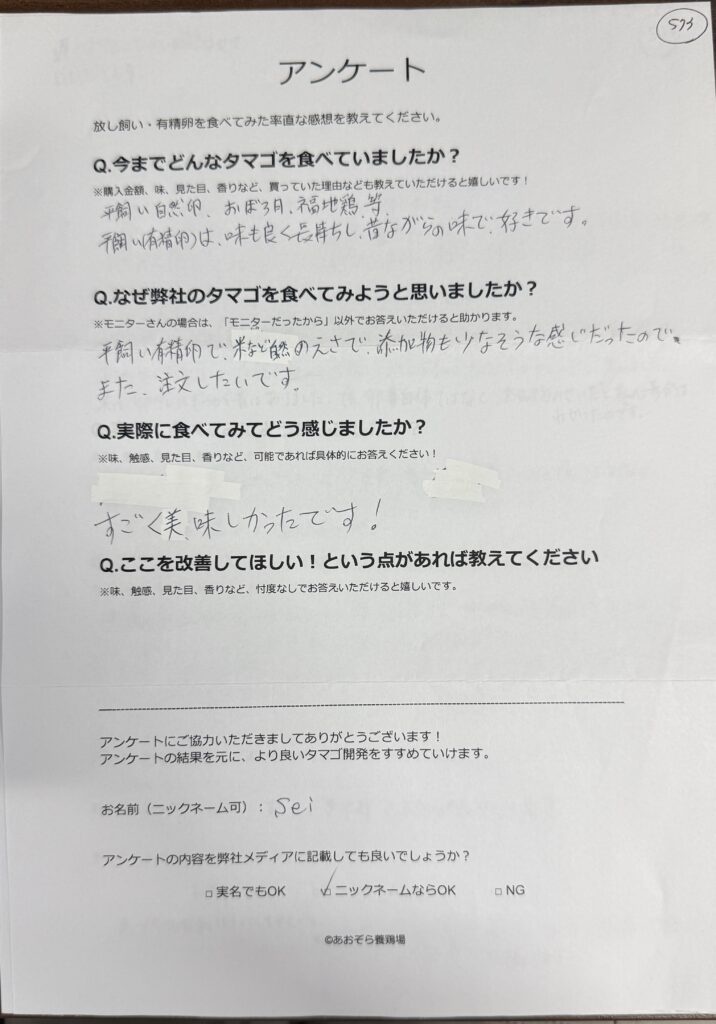 573
アンケート
放し飼い・有精卵を食べてみた率直な感想を教えてください。
Q.今までどんなタマゴを食べていましたか？
※購入金額、味、見た目、香りなど、買っていた理由なども教えていただけると嬉しいです！
平飼い自然卵、おぼろ月、福地鶏、等、
平飼い(有精卵)は、味も良く長持ちし、昔ながらの味で、好きです。
Q.なぜ弊社のタマゴを食べてみようと思いましたか？
※モニターさんの場合は、「モニターだったから」以外でお答えいただけると助かります。
平飼い有精卵で、米など自然のえさで、添加物も少なそうな感じだったので、
また、注文したいです。
Q.実際に食べてみてどう感じましたか？
※味、触感、見た目、香りなど、可能であれば具体的にお答えください！
すごく美味しかったです！
Q.ここを改善してほしい！という点があれば教えてください
※味、触感、見た目、香りなど、忖度なしでお答えいただけると嬉しいです。
アンケートにご協力いただきましてありがとうございます！
アンケートの結果を元に、より良いタマゴ開発をすすめていけます。
お名前（ニックネーム可）： Sei
アンケートの内容を弊社メディアに記載しても良いでしょうか？
□ 実名でもOK ☑ ニックネームならOK □ NG
©あおぞら養鶏場